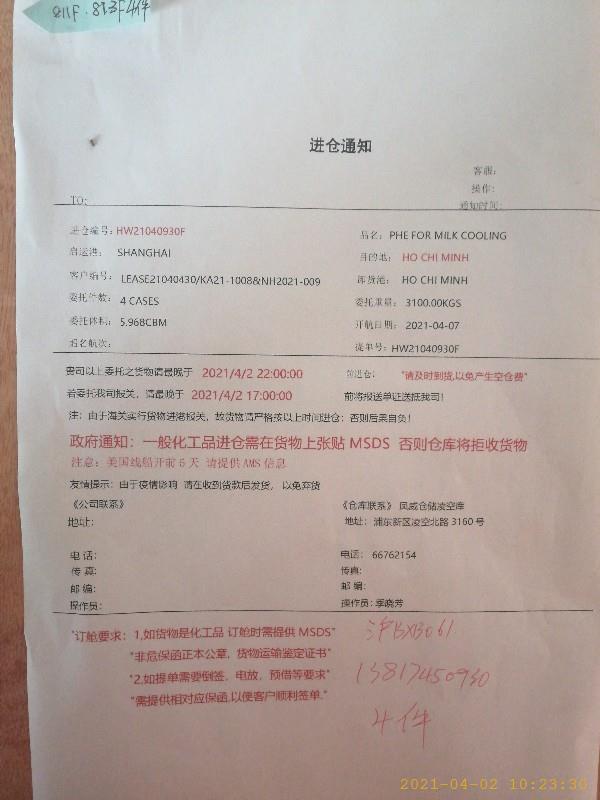 811F·853F4件
进仓通知
客服:
操作:
通知时间:
TO:
进仓编号: HW21040930F
品名: PHE FOR MILK COOLING
启运港: SHANGHAI
目的地: HO CHI MINH
客户编号: LEASE21040430/KA21-1008&NH2021-009
卸货港: HO CHI MINH
委托件数: 4 CASES
委托重量: 3100.00KGS
委托体积: 5.968CBM
开航日期: 2021-04-07
船名航次:
提单号: HW21040930F
贵司以上委托之货物请最晚于 2021/4/2 22:00:00 前进仓: "请及时到货,以免产生空仓费"
若委托我司报关, 请最晚于 2021/4/2 17:00:00 前将报送单证送抵我司!
注: 由于海关实行货物进港报关, 故货物请严格按以上时间进仓; 否则后果自负!
政府通知: 一般化工品进仓需在货物上张贴 MSDS 否则仓库将拒收货物
注意: 美国线船开前5天 请提供AMS信息
友情提示: 由于疫情影响 请在收到货款后发货, 以免弃货
《公司联系》
《仓库联系》 凤威仓储凌空库
地址:
地址: 浦东新区凌空北路 3160 号
电话:
电话: 66762154
传真:
传真:
邮编:
邮编:
操作员:
操作员: 季晓芳
"订舱要求: 1,如货物是化工品 订舱时需提供 MSDS"
"非危保函正本公章, 货物运输鉴定证书"
"2,如提单需要倒签, 电放, 预借等要求"
"需提供相对应保函,以便客户顺利签单."
沪BX13061
13817450930
4件
2021-04-02 10:23:30